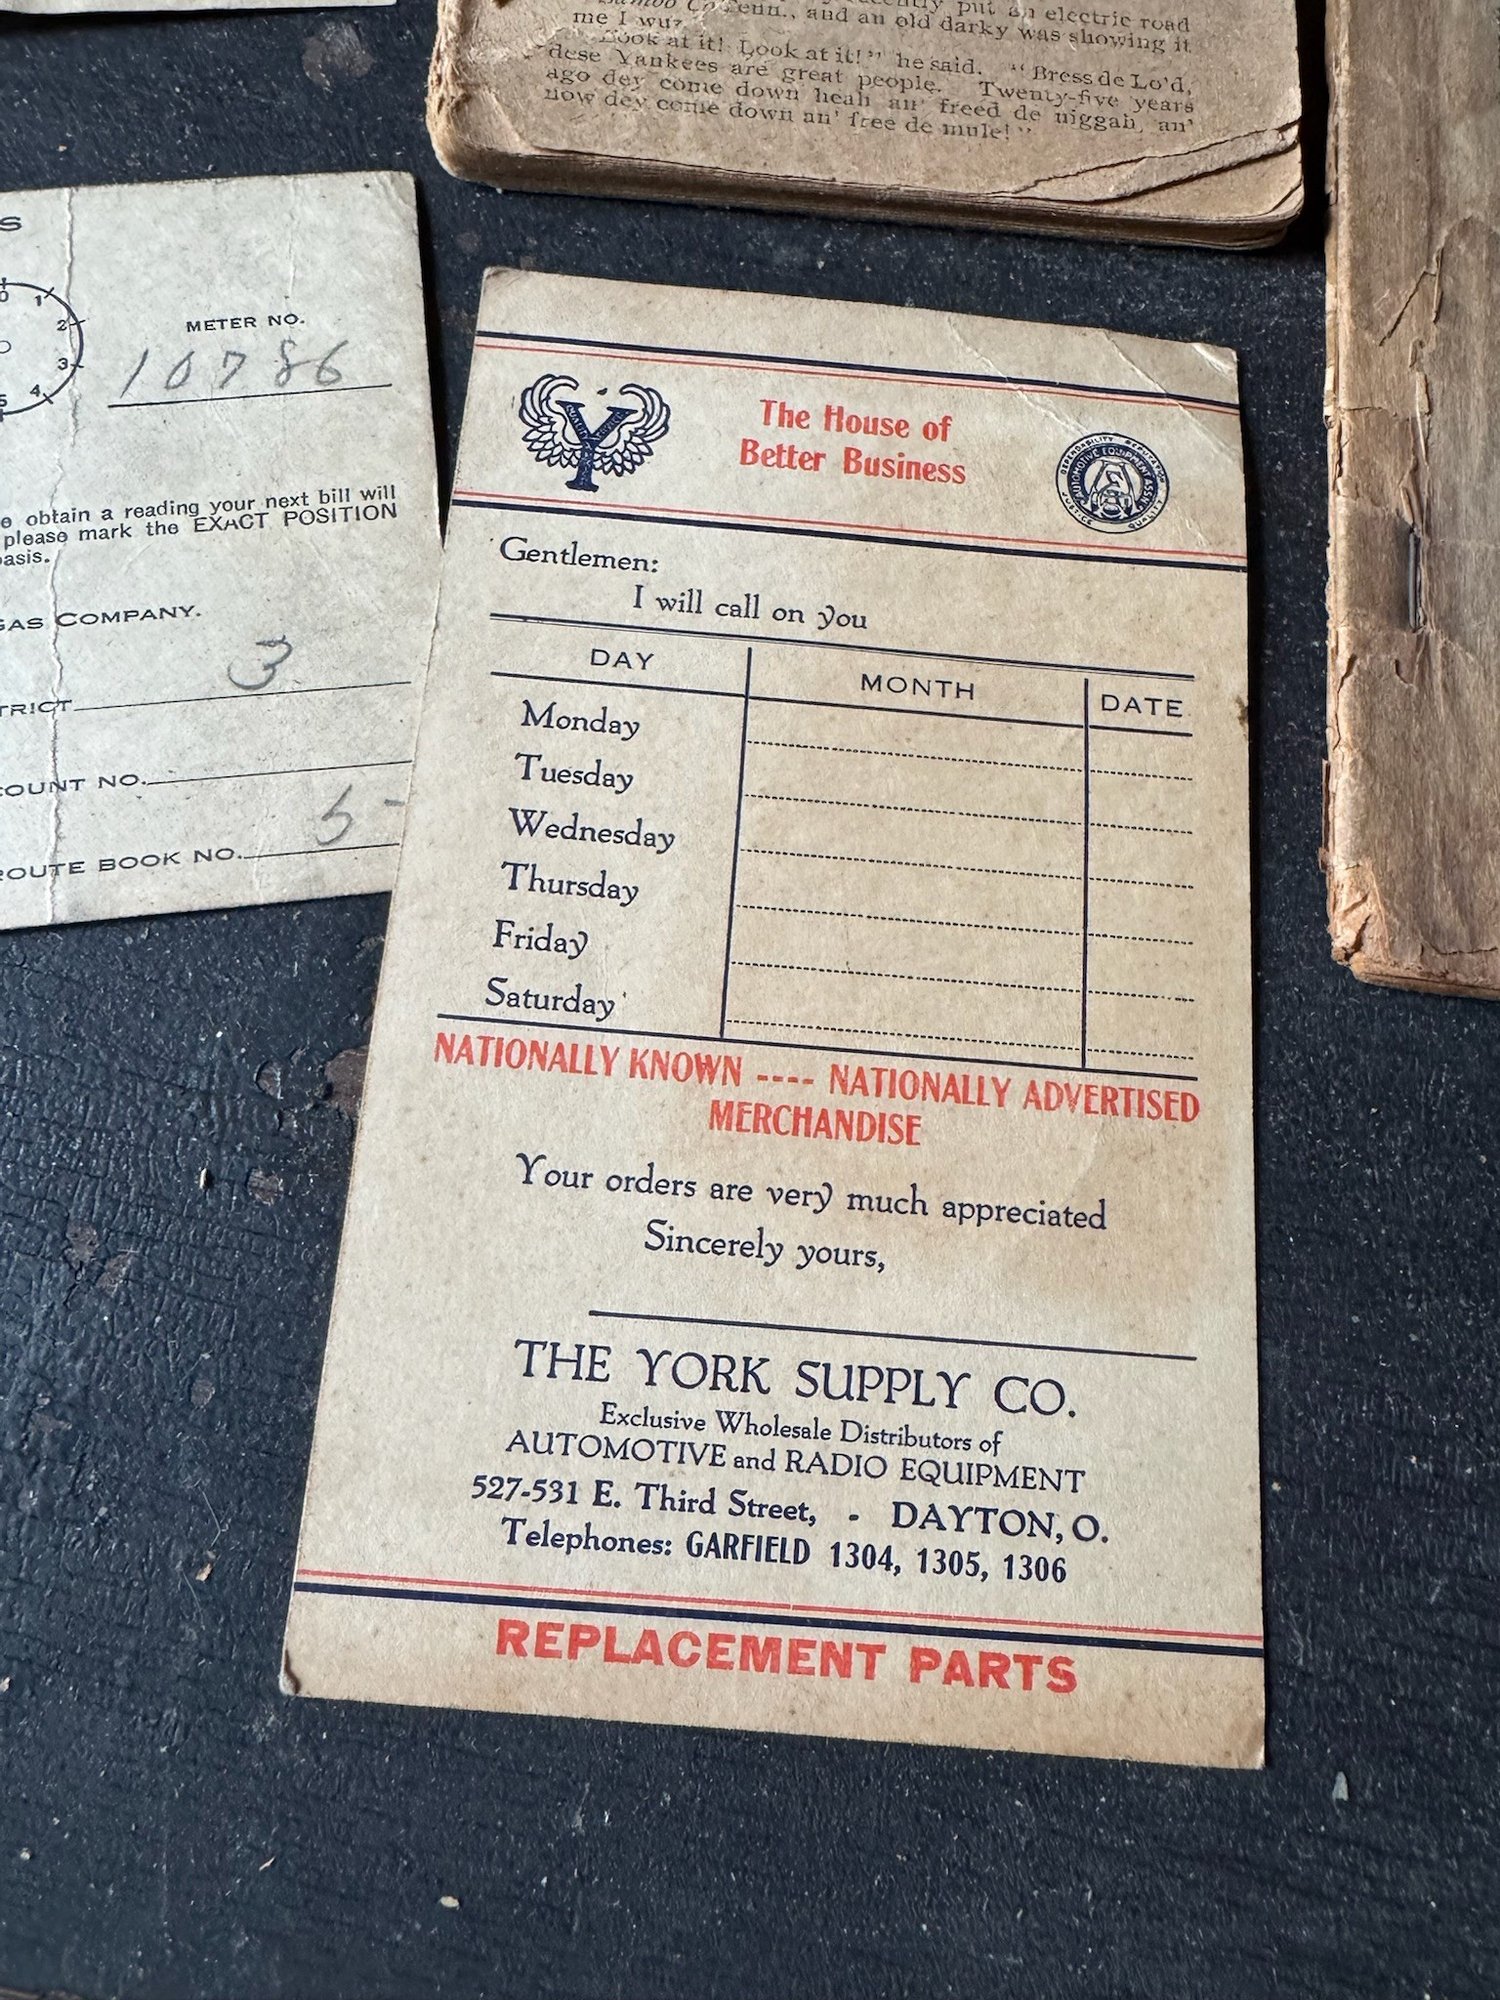 put an electric road
Tenn., and an old darky was showing it
me I wuz.
"Look at it! Look at it!" he said. "Bress de Lo'd,
dese Yankees are great people. Twenty-five years
ago dey come down heah an' freed de niggah, an'
now dey come down an' free de mule!"
S
0 1 2 3 4 5
METER NO.
10786
obtain a reading your next bill will
please mark the EXACT POSITION
basis.
GAS COMPANY.
3
TRICT
COUNT NO.
5-
ROUTE BOOK NO.
Y
The House of
Better Business
DEPENDABILITY REPUTATION
AUTOMOTIVE EQUIPMENT ASSN.
JUSTICE QUALITY
Gentlemen:
I will call on you
DAY MONTH DATE
Monday
Tuesday
Wednesday
Thursday
Friday
Saturday
NATIONALLY KNOWN ---- NATIONALLY ADVERTISED
MERCHANDISE
Your orders are very much appreciated
Sincerely yours,
THE YORK SUPPLY CO.
Exclusive Wholesale Distributors of
AUTOMOTIVE and RADIO EQUIPMENT
527-531 E. Third Street, - DAYTON, O.
Telephones: GARFIELD 1304, 1305, 1306
REPLACEMENT PARTS